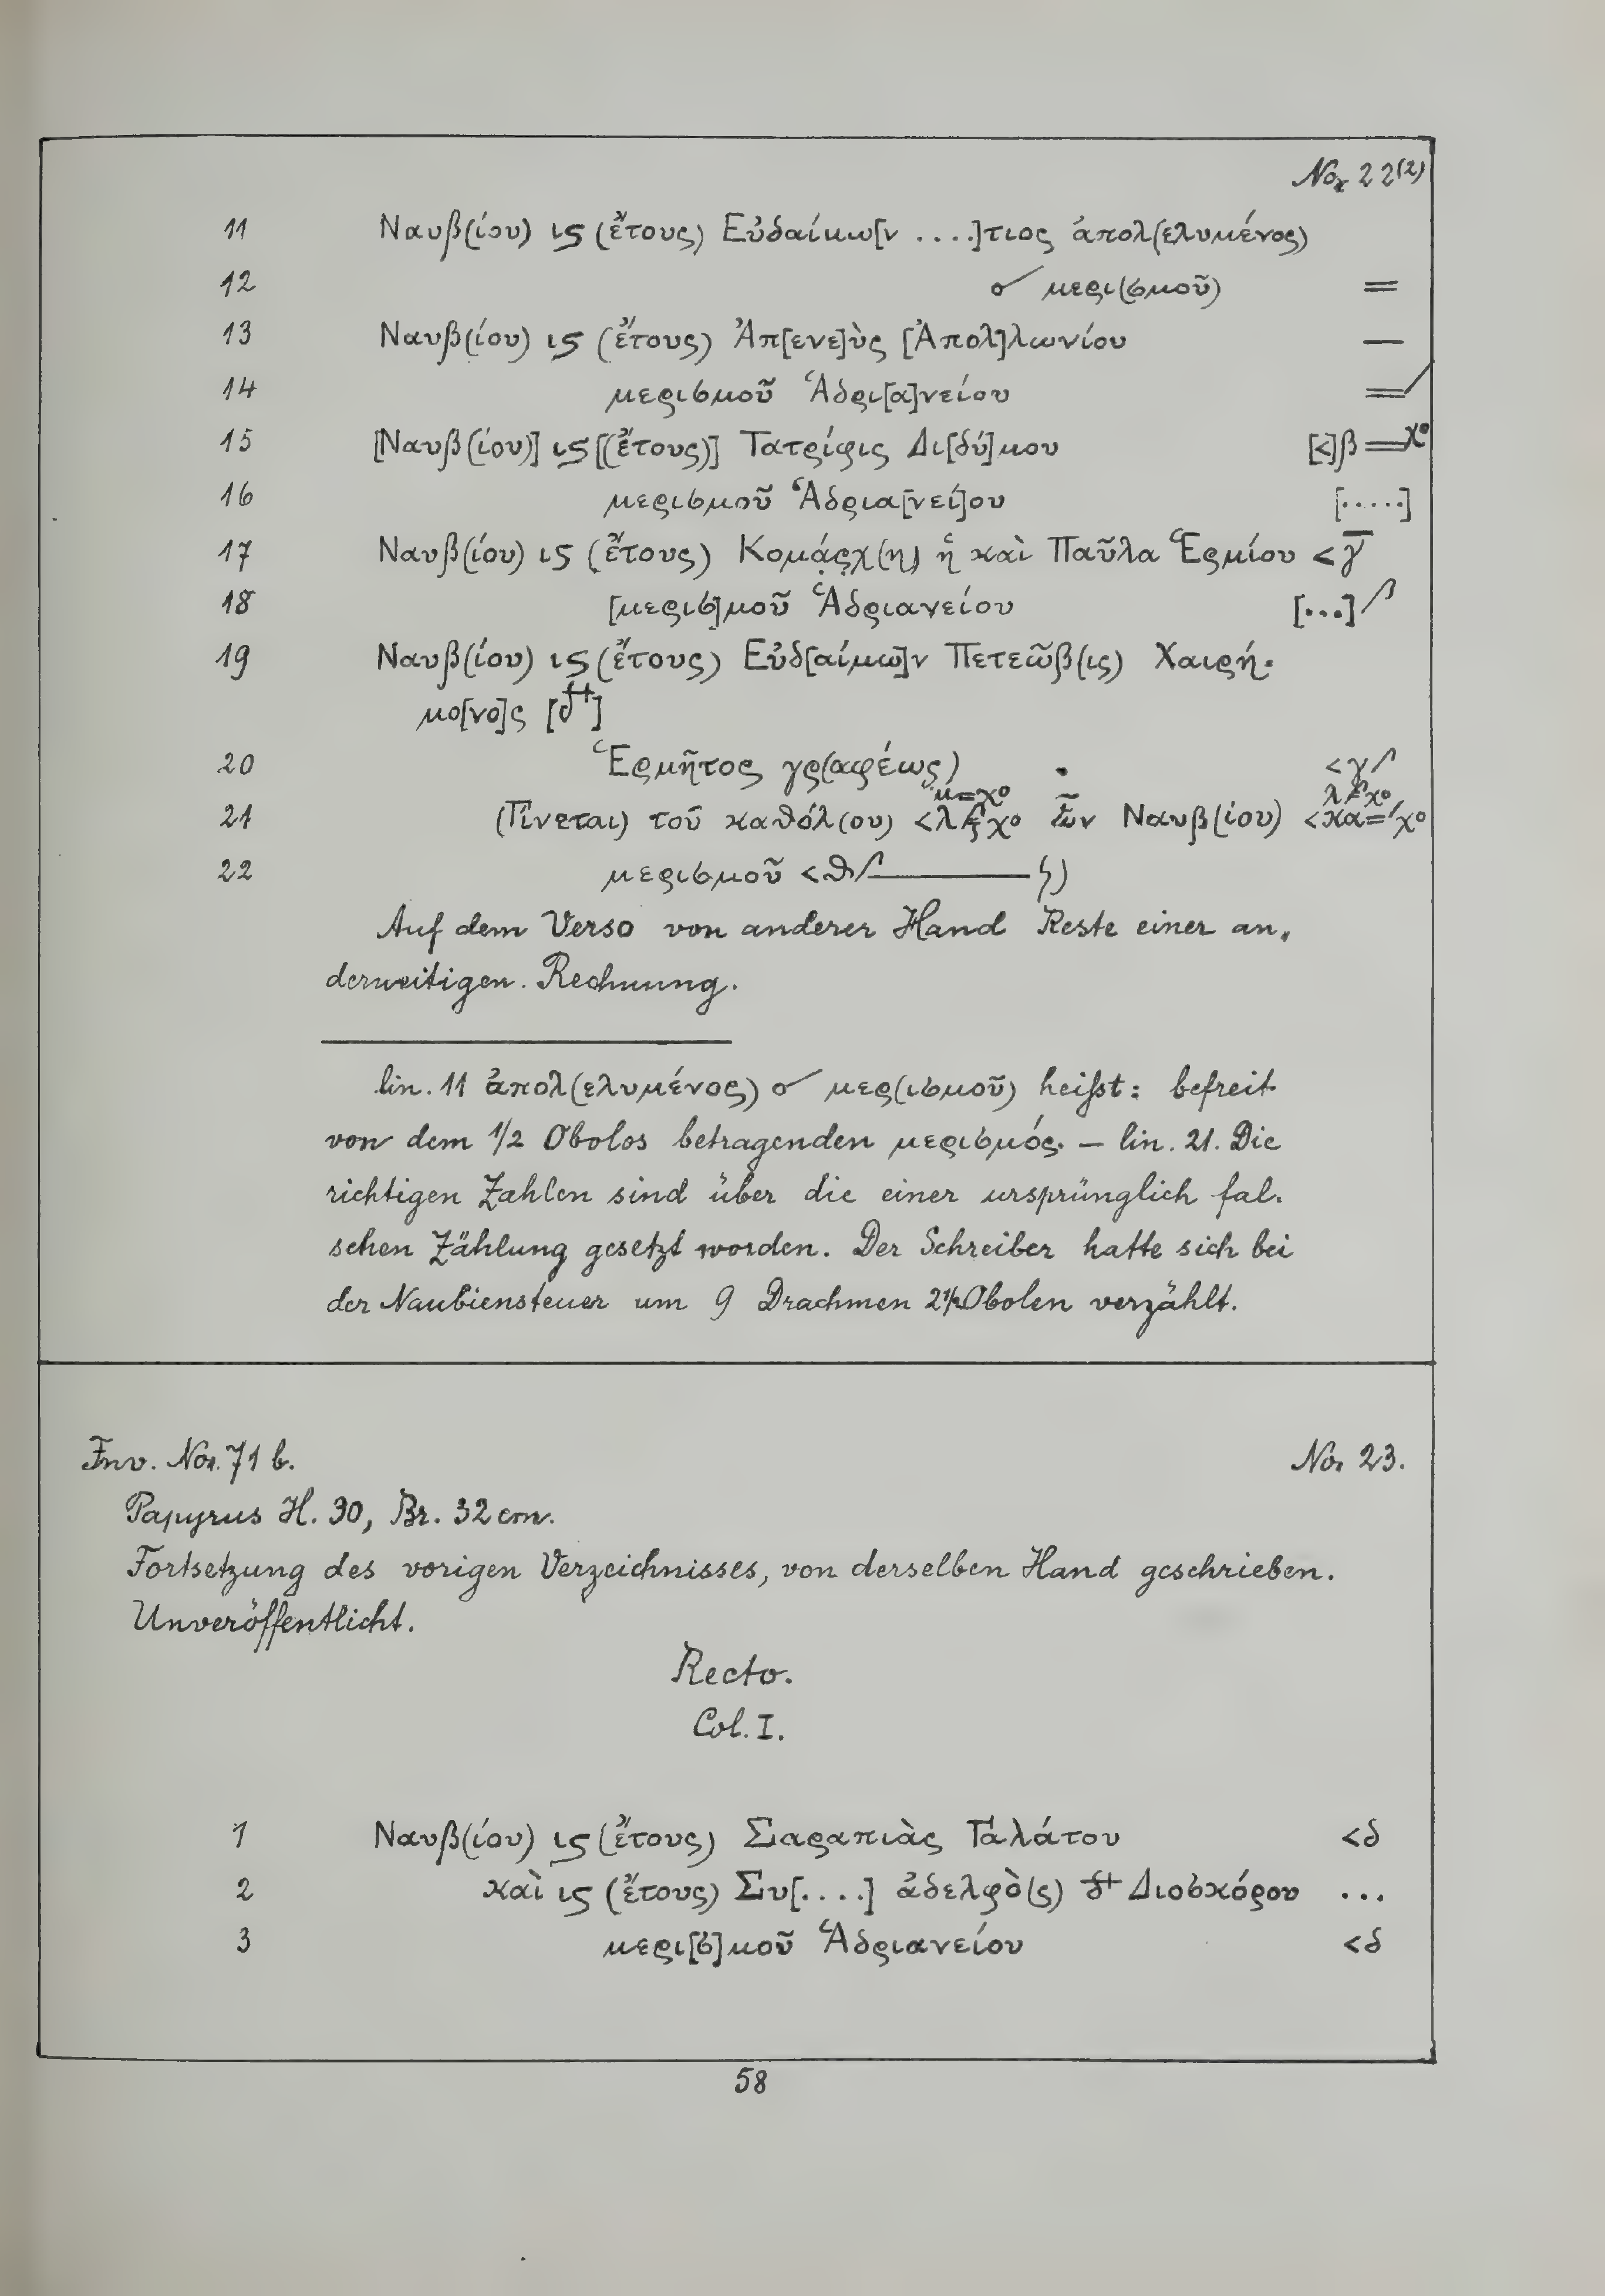 No. 22(2)
11 Ναυβ(ίου) ις (ἔτους) Εὐδαίμω[ν ....]τιος ἀπολ(ελυμένος)
12 μερι(σμοῦ) =
13 Ναυβ(ίου) ις (ἔτους) Ἀπ[ενε]ὺς [Ἀπολ]λωνίου —
14 μερισμοῦ Ἁδρι[α]νείου =/
15 [Ναυβ(ίου)] ις [(ἔτους)] Τατρίφις Δι[δύ]μου [<]β = χο
16 μερισμοῦ Ἁδρια[νεί]ου [.....]
17 Ναυβ(ίου) ις (ἔτους) Κομάρχ(η) ἡ καὶ Παῦλα Ἑρμίου <γ̅
18 [μερισ]μοῦ Ἁδριανείου [...]
19 Ναυβ(ίου) ις (ἔτους) Εὐδ[αίμω]ν Πετεῶβ(ις) Χαιρή-
μο[νο]ς
20 Ἑρμῆτος γρ(αφέως) <γ
21 (Γίνεται) τοῦ καθόλ(ου) <λ χο ὧν Ναυβ(ίου) <κα=/χο
22 μερισμοῦ <θ
Auf dem Verso von anderer Hand Reste einer an-
derweitigen Rechnung.
lin. 11 ἀπολ(ελυμένος) μερ(ισμοῦ) heißt: befreit
von dem 1/2 Obolos betragenden μερισμός. — lin. 21. Die
richtigen Zahlen sind über die einer ursprünglich fal-
schen Zählung gesetzt worden. Der Schreiber hatte sich bei
der Naubiensteuer um 9 Drachmen 2½ Obolen verzählt.
Inv. No. 71 b. No. 23.
Papyrus H. 30, Br. 32 cm.
Fortsetzung des vorigen Verzeichnisses, von derselben Hand geschrieben.
Unveröffentlicht.
Recto.
Col. I.
1 Ναυβ(ίου) ις (ἔτους) Σαραπιὰς Γαλάτου <δ
2 καὶ ις (ἔτους) Συ[....] ἀδελφὸ(ς) Διοσκόρου ...
3 μερι[σ]μοῦ Ἁδριανείου <δ
58